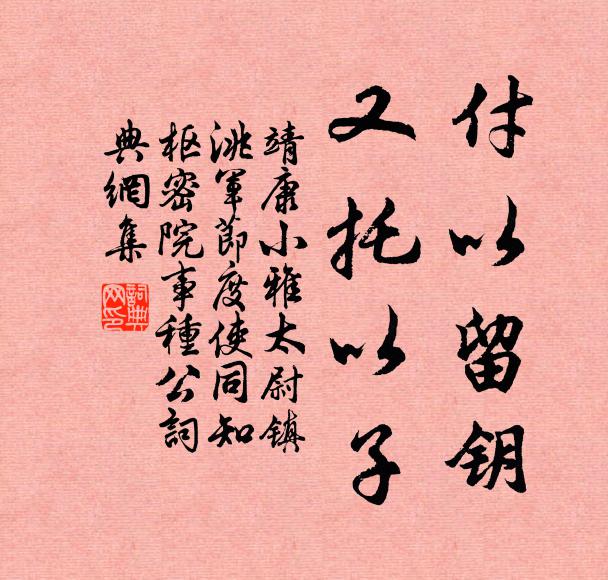 付以留钥
又托以子
靖康小雅太尉镇
洮军节度使同知
枢密院事种公词
典网集
詞典
网印